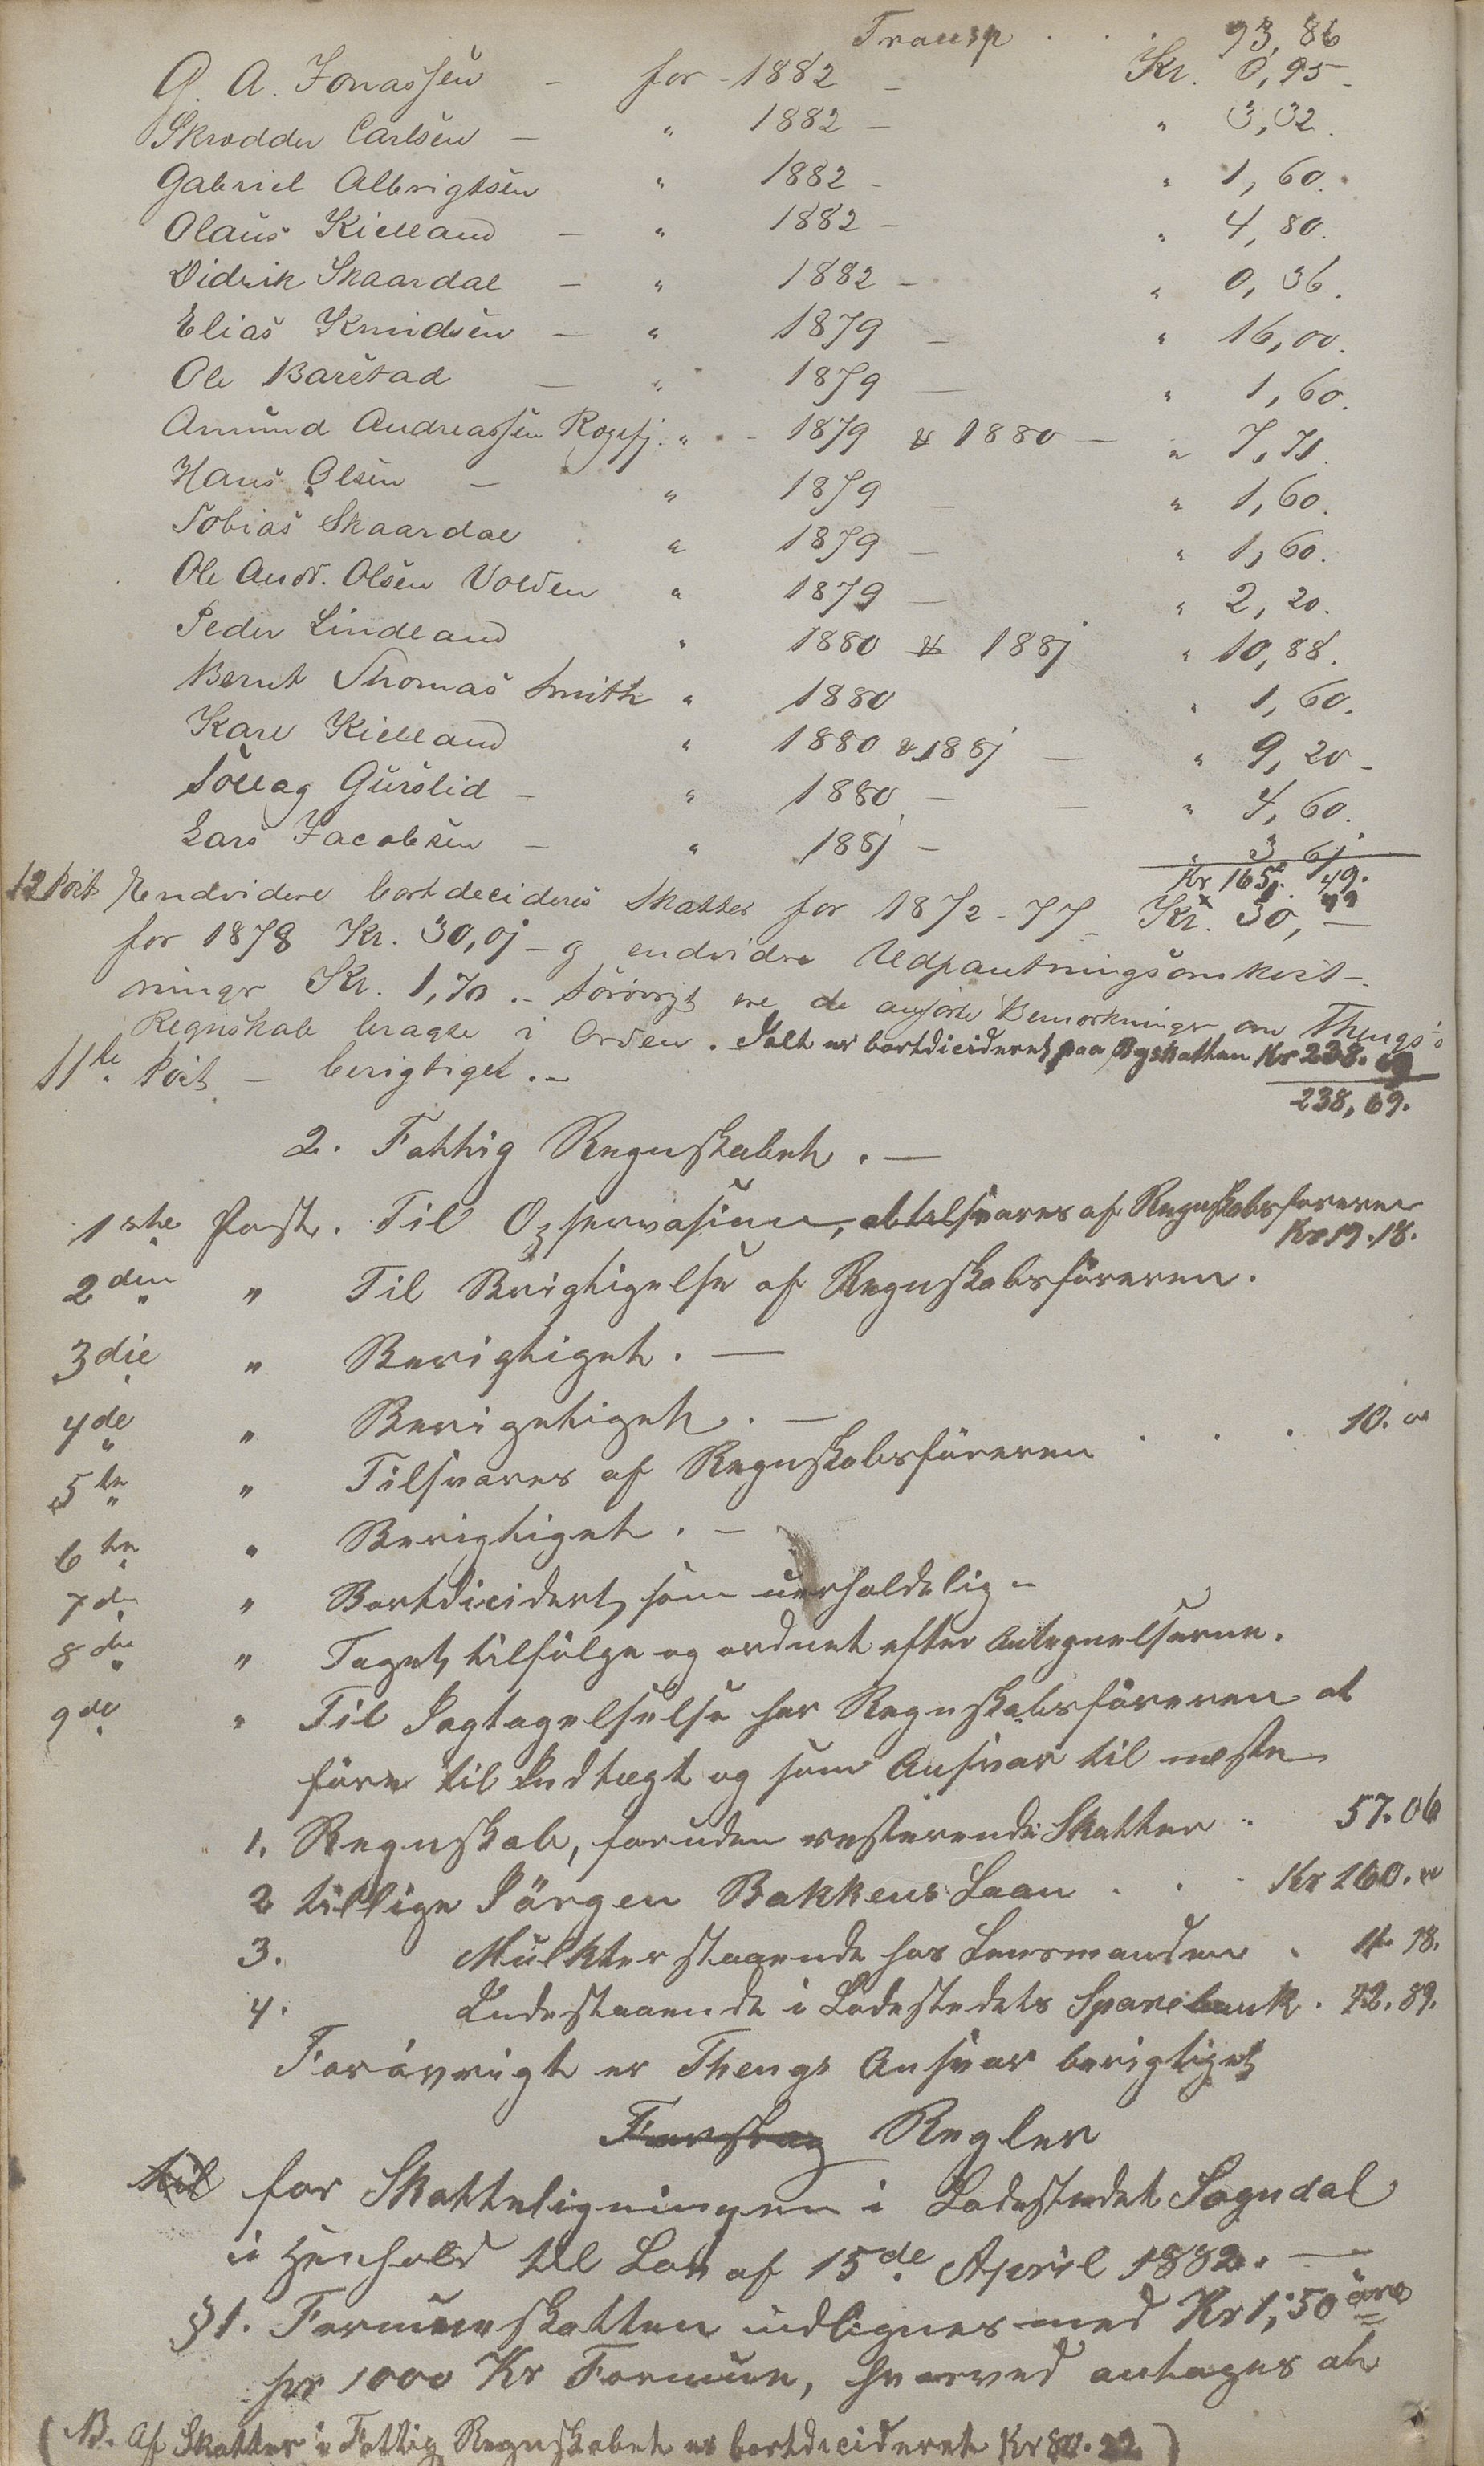 Transp . . 93,86
G. A. Jonassen - for - 1882 - Kr. 0,95 -
Skrædder Carlsen - " 1882 - " 3,32.
Gabriel Albrigtsen " 1882 - " 1,60.
Olaus Kielland - " 1882 - " 4,80.
Didrik Skaardal - " 1882 - " 0,36.
Elias Knudsen - " 1879 - " 16,00.
Ole Barstad - " 1879 - " 1,60.
Amund Andreassen Rægefj. " - 1879 & 1880 - " 7,71.
Hans Olsen - " 1879 - " 1,60.
Tobias Skaardal " 1879 - " 1,60.
Ole Andr. Olsen Volden " 1879 - " 2,20.
Peder Lindland " 1880 & 1881 " 10,88.
Bernt Thomas Smith " 1880 " 1,60.
Karl Kielland " 1880 & 1881 - " 9,20 -
Söllag Gurslid - " 1880 - - " 4,60.
Lars Jacobsen - " 1881 - " 3 61.
Kr 165. 49.
12 Post Endvidere bortdecideres Skatter for 1872-77 - Kr. 30, -
for 1878 Kr. 30,01 - og endvidre Udpantningsomkost-
ninger Kr. 1,70 .- Forövrigt ere de anførte Bemærkninger om Thengs's
Regnskab bragte i Orden. Ialt er bortdicideret paa Byskatten Kr 238. 69
11te Post - berigtiget. - 238,69.
2. Fattig Regnskabet. -
1ste Post. Til Observasion, tilsvares af Regnskabsføreren
Kr 19.18.
2den " Til Berigtigelse af Regnskabsföreren.
3die " Berigtiget. -
4de " Berigtiget. -
5te " Tilsvares af Regnskabsföreren . . . 10. 00
6te " Berigtiget. -
7de " Bortdicidert som uerholdelig -
8de " Taget tilfølge og ordnet efter Antegnelserne.
9de " Til Iagtagelselse har Regnskabsföreren at
före til Indtægt og som Ansvar til næste
1. Regnskab, foruden resterende Skatter . 57.06
2 tillige Jörgen Bakkens Laan . . . Kr 160. 00
3. Mulkter staaende hos Lensmanden . 4. 78.
4. Indestaaende i Ladestedets Sparebank . 72.89.
Forövrigt er Thengs Ansvar berigtiget
Forslag Regler
til for Skatteligningen i Ladestedet Sogndal
i Henhold til Lov af 15de April 1882. -
§ 1. Formueskatten udlignes med Kr 1,50 öre
pr 1000 Kr Formue, hvorved antages at
(NB. Af Skatter i Fattig Regnskabet er bortdicideret Kr 80. 22)